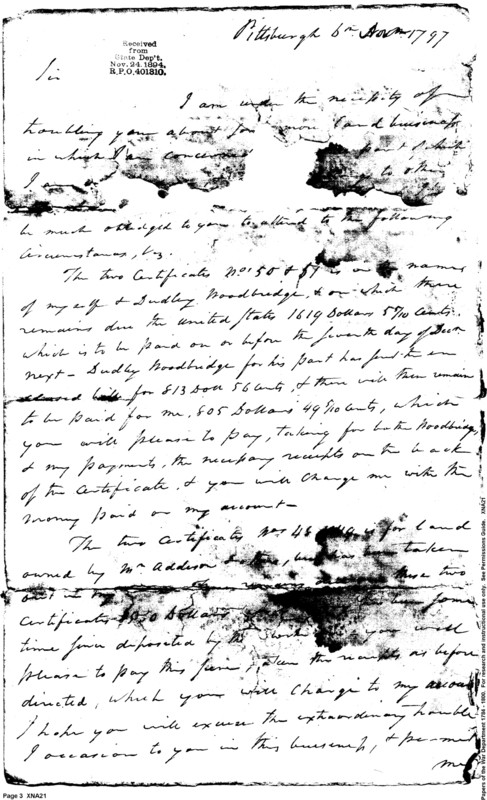 Pittsburgh 6th Novr 1797
Received
from
State Dep't.
Nov. 24. 1894.
R.P.O. 401810.
Sir
I am under the necessity of
troubling you about some more land business
in which I am concerned part of which
I to others
be much obledged to you to attend to the following
Circumstances, Viz.
The two Certificates Nos. 50 & 51 is in the names
of myself & Dudley Woodbridge, & on which there
remains due the United States 1619 Dollars 5/10 Cents
which is to be paid on or before the seventh day of Decr
next - Dudley Woodbridge for his part has sent the en
closed bill for 813 Doll 56 Cents, & there will then remain
to be paid for me, 805 Dollars 49 5/10 Cents, which
you will please to pay, taking for both Woodbridge
& my payments, the necessary receipts on the back
of the Certificate, & you will Charge me with the
money paid on my account -
The two Certificates Nos 48 is for land
owned by Mr Addison taken
out in my these two
Certificates Dollars been some
time since deposited by Mr you will
please to pay this sum, taken the receipts as before
directed, which you will Charge to my account
I hope you will excuse the extraordinary trouble
I occasion to you in this business, & per-mit
me
Page 3 XNA21
Papers of the War Department 1784 - 1800. For research and instructional use only. See Permissions Guide. XNA21